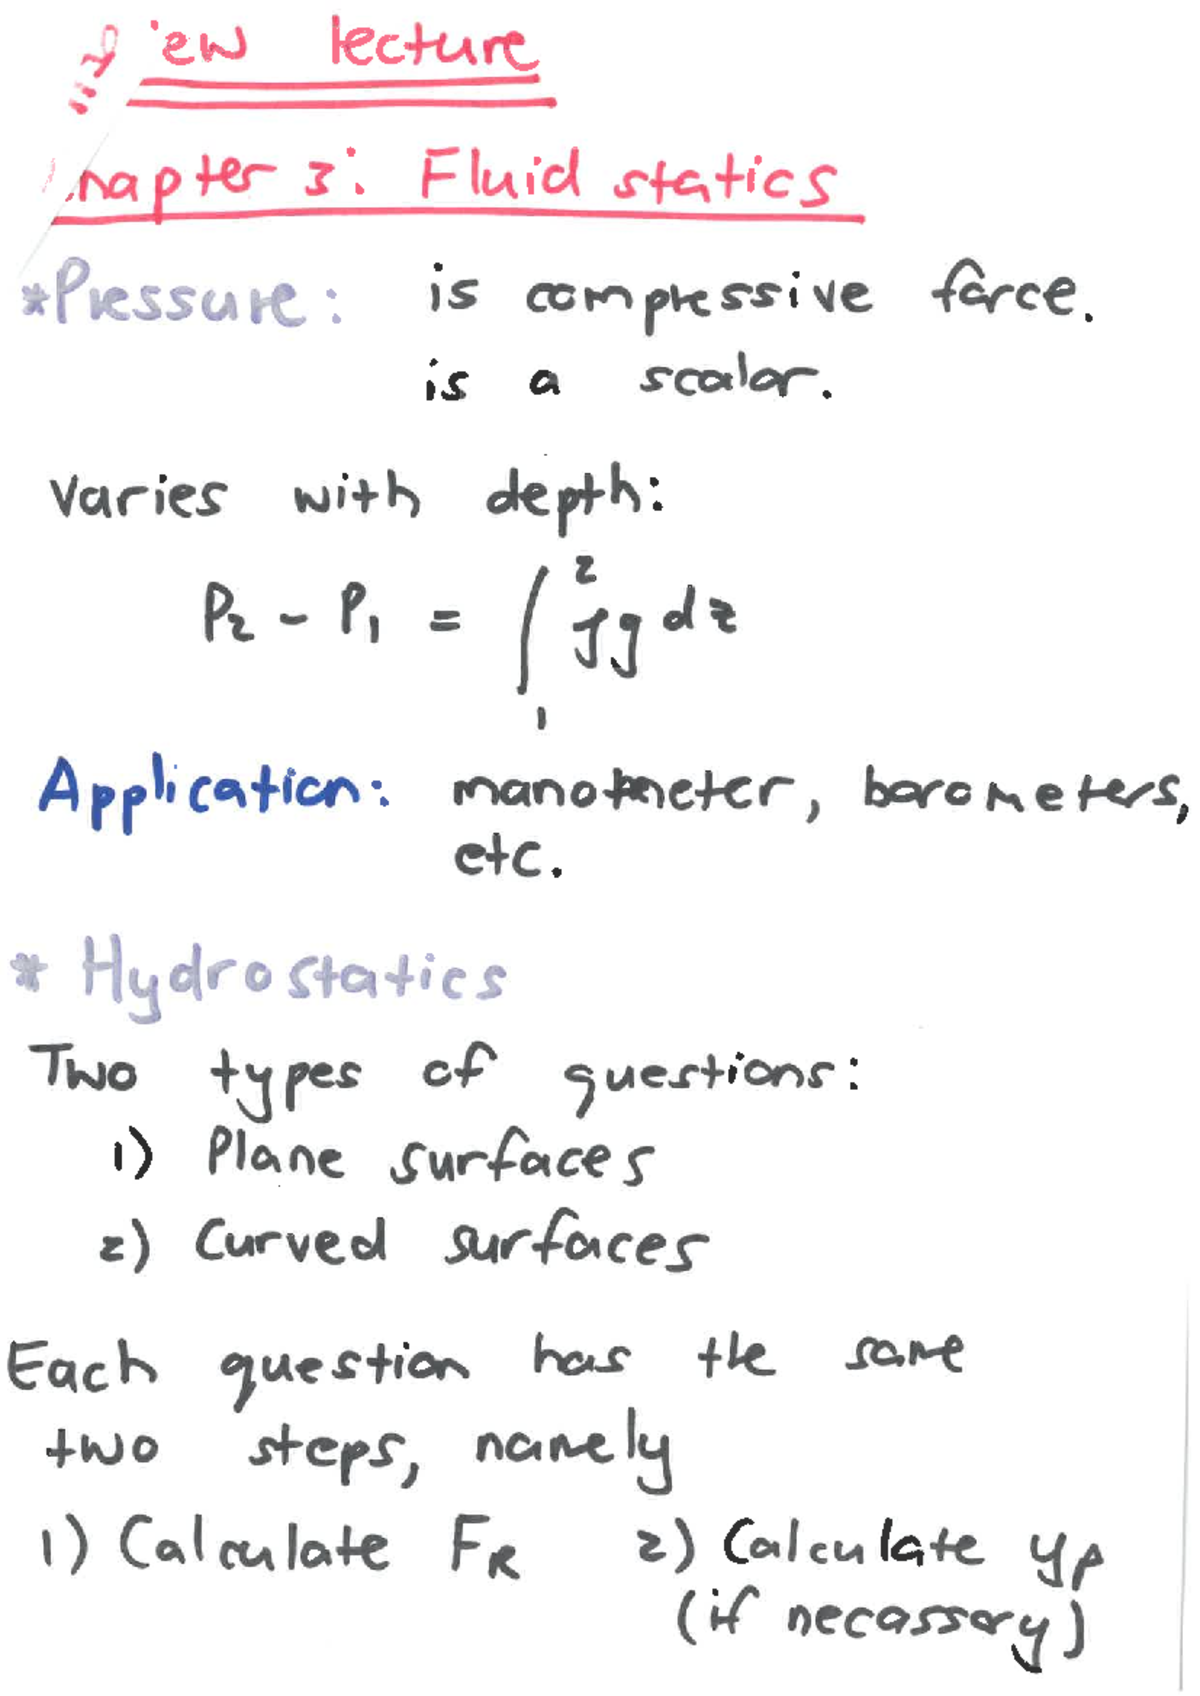 'ew lecture
Chapter 3: Fluid statics
*Pressure: is compressive force.
is a scalar.
Varies with depth:
P₂ - P₁ = ∫₁² ρg dz
Application: manometer, barometers,
etc.
* Hydrostatics
Two types of questions:
1) Plane surfaces
2) Curved surfaces
Each question has the same
two steps, namely
1) Calculate F_R 2) Calculate y_P
(if necassary)